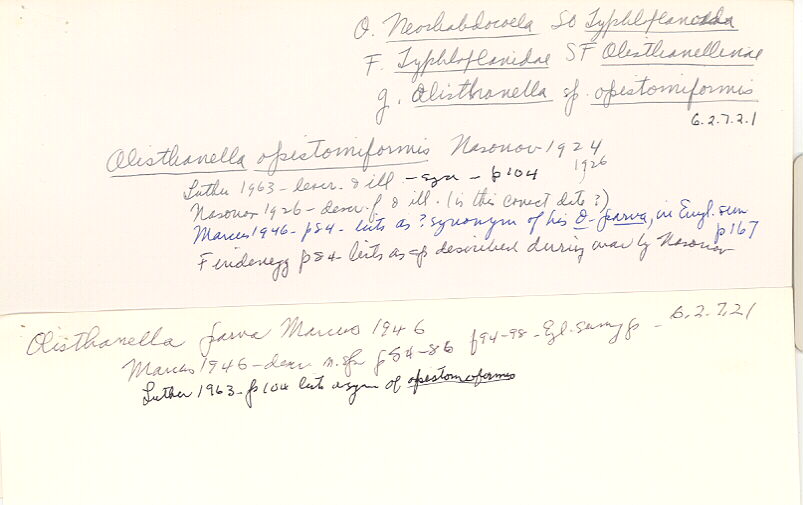 O. Neorhabdocoela SO Typhloplanoida
F. Typhloplanidae SF Olisthanellinae
g. Olisthanella sp. opistomiformis
6.2.7.2.1
Olisthanella opistomiformis Nasonov 1924
1926
Luther 1963 - descr. & ill - syn - p104
Nasonov 1926 - descr. f & ill. (is this correct date?)
Marcus 1946 - p84 - lists as ? synonym of his O. parva, in Engl. sum p167
Findenegg p84 - lists as sp described during war by Nasonov
6.2.7.21
Olisthanella parva Marcus 1946
Marcus 1946 - descr n. sp p84-86 p94-98 - Egl. summ p -
Luther 1963 - p104 lists as syn of opistomoformis